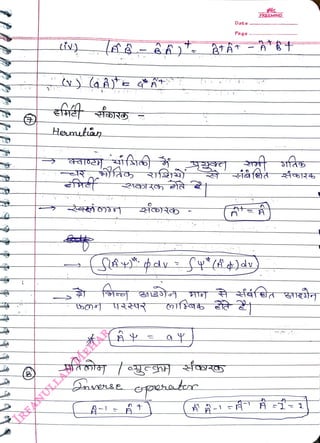 Date
Page
(iv) (ÂB̂ - B̂Â)⁺ = B̂⁺Â⁺ - Â⁺B̂⁺
(v) (aÂ)⁺ = a*Â⁺
⑦ हर्मिटी संकारक -
Hermitian
→ क्वाण्टम यांत्रिकी में प्रयुक्त सभी गतिक
चर भौतिक राशियों से संबंधित संकारक
हर्मिटी संकारक होते है।
→ स्वसंलग्न संकारक - Â⁺ = Â
→ ∫(Âψ)* φ dv = ∫ψ*(Âφ)dv
→ दो भिन्न आइगेन मान से संबंधित आइगेन
फलन परस्पर लाम्बिक होते है।
* Âψ = aψ
⑧ प्रतिलोम / व्युत्क्रम संकारक
Inverse operator
Â⁻¹ = Â⁺ Â Â⁻¹ = Â⁻¹ Â = Î = 1
IRFANULLAH MEHAR